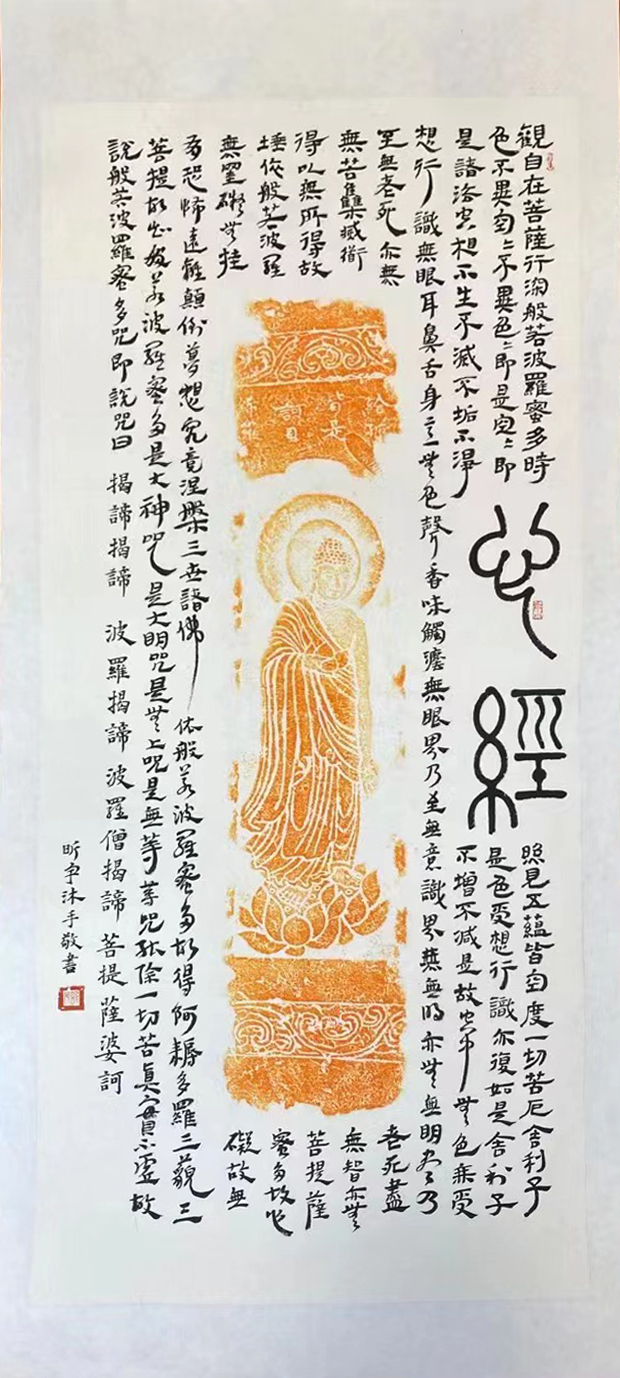 観自在菩薩行深般若波羅蜜多時
照見五蘊皆空度一切苦厄舍利子
色不異空〻不異色〻即是空〻即
是色受想行識亦復如是舍利子
是諸法空想不生不滅不垢不淨
不增不減是故空中無色無受
心經
想行識無眼耳鼻舌身意無色聲香味觸法無眼界乃至無意識界無無明亦無無明盡乃
至無老死亦無
老死盡
無苦集滅道
無智亦無
得以無所得故
菩提薩
埵依般若波羅
蜜多故心
無罣礙無挂
礙故無
有恐怖遠離顛倒夢想究竟涅槃三世諸佛依般若波羅蜜多故得阿耨多羅三藐三
菩提故知般若波羅蜜多是大神咒是大明咒是無上咒是無等等咒能除一切苦真實不虛故
說般若波羅蜜多咒即說咒曰 揭諦揭諦 波羅揭諦 波羅僧揭諦 菩提薩婆訶
沐手敬書